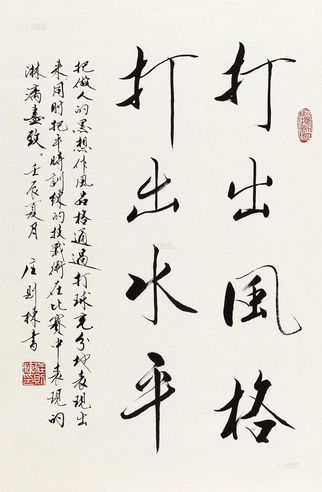 打出風格
打出水平
把做人的思想作風品格通過打球充分地表現出
来同时把平時訓練的技戰術在比賽中表現的
淋漓盡致。壬辰夏月 庄則棟書